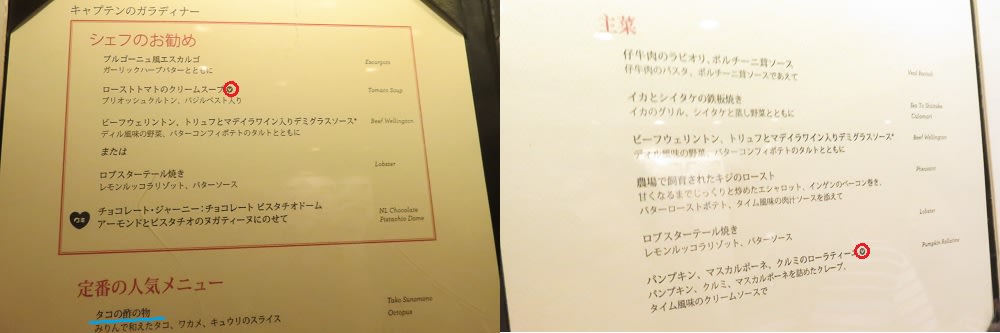 キャプテンのガラディナー
シェフのお勧め
ブルゴーニュ風エスカルゴ
ガーリックハーブバターとともに
Escargots
ローストトマトのクリームスープ
ブリオッシュクルトン、バジルペスト入り
Tomato Soup
ビーフウェリントン、トリュフとマデイラワイン入りデミグラスソース*
ディル風味の野菜、バターコンフィポテトのタルトとともに
Beef Wellington
または
ロブスターテール焼き
レモンルッコラリゾット、バターソース
Lobster
チョコレート・ジャーニー：チョコレート ピスタチオドーム
アーモンドとピスタチオのヌガティーヌにのせて
NL Chocolate
Pistachio Dome
定番の人気メニュー
タコの酢の物
みりんで和えたタコ、ワカメ、キュウリのスライス
Tako Sunomono
Octopus
主菜
仔牛肉のラビオリ、ポルチーニ茸ソース
仔牛肉のパスタ、ポルチーニ茸ソースであえて
Veal Ravioli
イカとシイタケの鉄板焼き
イカのグリル、シイタケと蒸し野菜とともに
Calamari
ビーフウェリントン、トリュフとマデイラワイン入りデミグラスソース*
ディル風味の野菜、バターコンフィポテトのタルトとともに
Beef Wellington
農場で飼育されたキジのロースト
甘くなるまでじっくりと炒めたエシャロット、インゲンのベーコン巻き、
バターローストポテト、タイム風味の肉汁ソースを添えて
Pheasant
ロブスターテール焼き
レモンルッコラリゾット、バターソース
Lobster
パンプキン、マスカルポーネ、クルミのローラティーニ
パンプキン、クルミ、マスカルポーネを詰めたクレープ、
タイム風味のクリームソースで
Pumpkin Rollatine